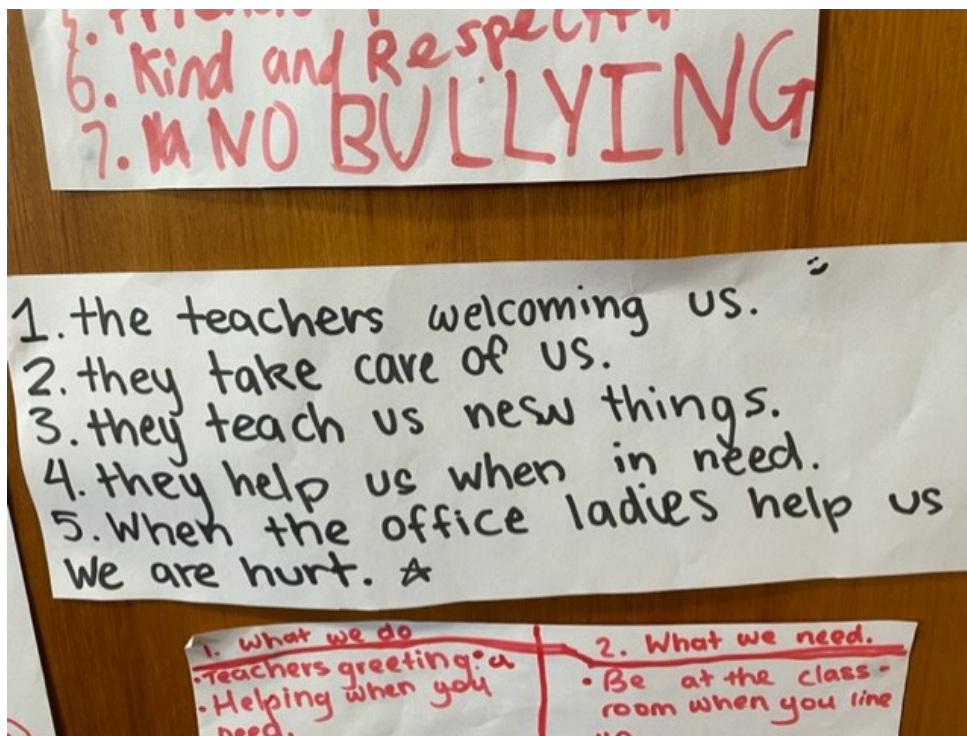 6. Kind and Respectful
7. NO BULLYING
1. the teachers welcoming us.
2. they take care of us.
3. they teach us nesw things.
4. they help us when in need.
5. When the office ladies help us
We are hurt.
1. What we do
• Teachers greeting: a
• Helping when you
need.
2. What we need.
• Be at the class-
room when you line